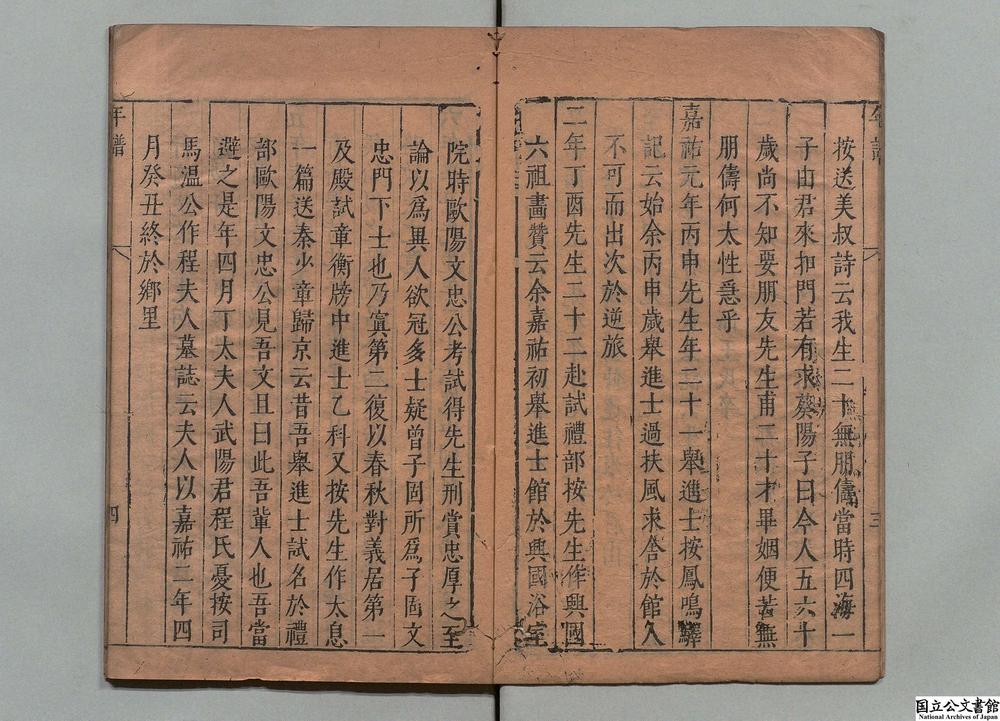 年譜
三
按送美叔詩云我生二十無朋儔當時四海一
子由君來扣門若有求葵陽子曰今人五六十
歲尚不知要朋友先生甫二十才畢姻便苦無
朋儔何太性急乎
嘉祐元年丙申先生年二十一舉進士按鳳鳴驛
記云始余丙申歲舉進士過扶風求舍於館人
不可而出次於逆旅
二年丁酉先生二十二赴試禮部按先生作興國
六祖畫贊云余嘉祐初舉進士館於興國浴室
院時歐陽文忠公考試得先生刑賞忠厚之至
論以爲異人欲冠多士疑曾子固所爲子固文
忠門下士也乃寘第二復以春秋對義居第一
及殿試章衡牓中進士乙科又按先生作太息
一篇送秦少章歸京云昔吾舉進士試名於禮
部歐陽文忠公見吾文且曰此吾輩人也吾當
避之是年四月丁太夫人武陽君程氏憂按司
馬溫公作程夫人墓誌云夫人以嘉祐二年四
月癸丑終於鄉里
年譜
四
国立公文書館
National Archives of Japan